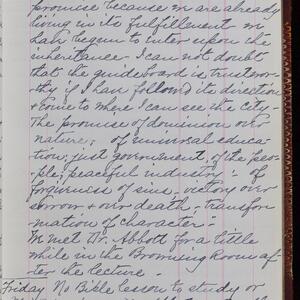 promise because we are already
living in its fulfillment. We
have begun to enter upon the
inheritance. I can not doubt
that the guideboard is trustwor-
thy if I have followed its direction
& come to where I can see the City-
The promise of dominion over
nature, of universal educa-
tion, just government, of the peo-
ple; peaceful industry: of
forgiveness of sins, victory over
sorrow & our death, transfor-
mation of character.
We met Dr. Abbott for a little
while in the Browning Room af-
ter the lecture.
Friday No Bible lesson to study or